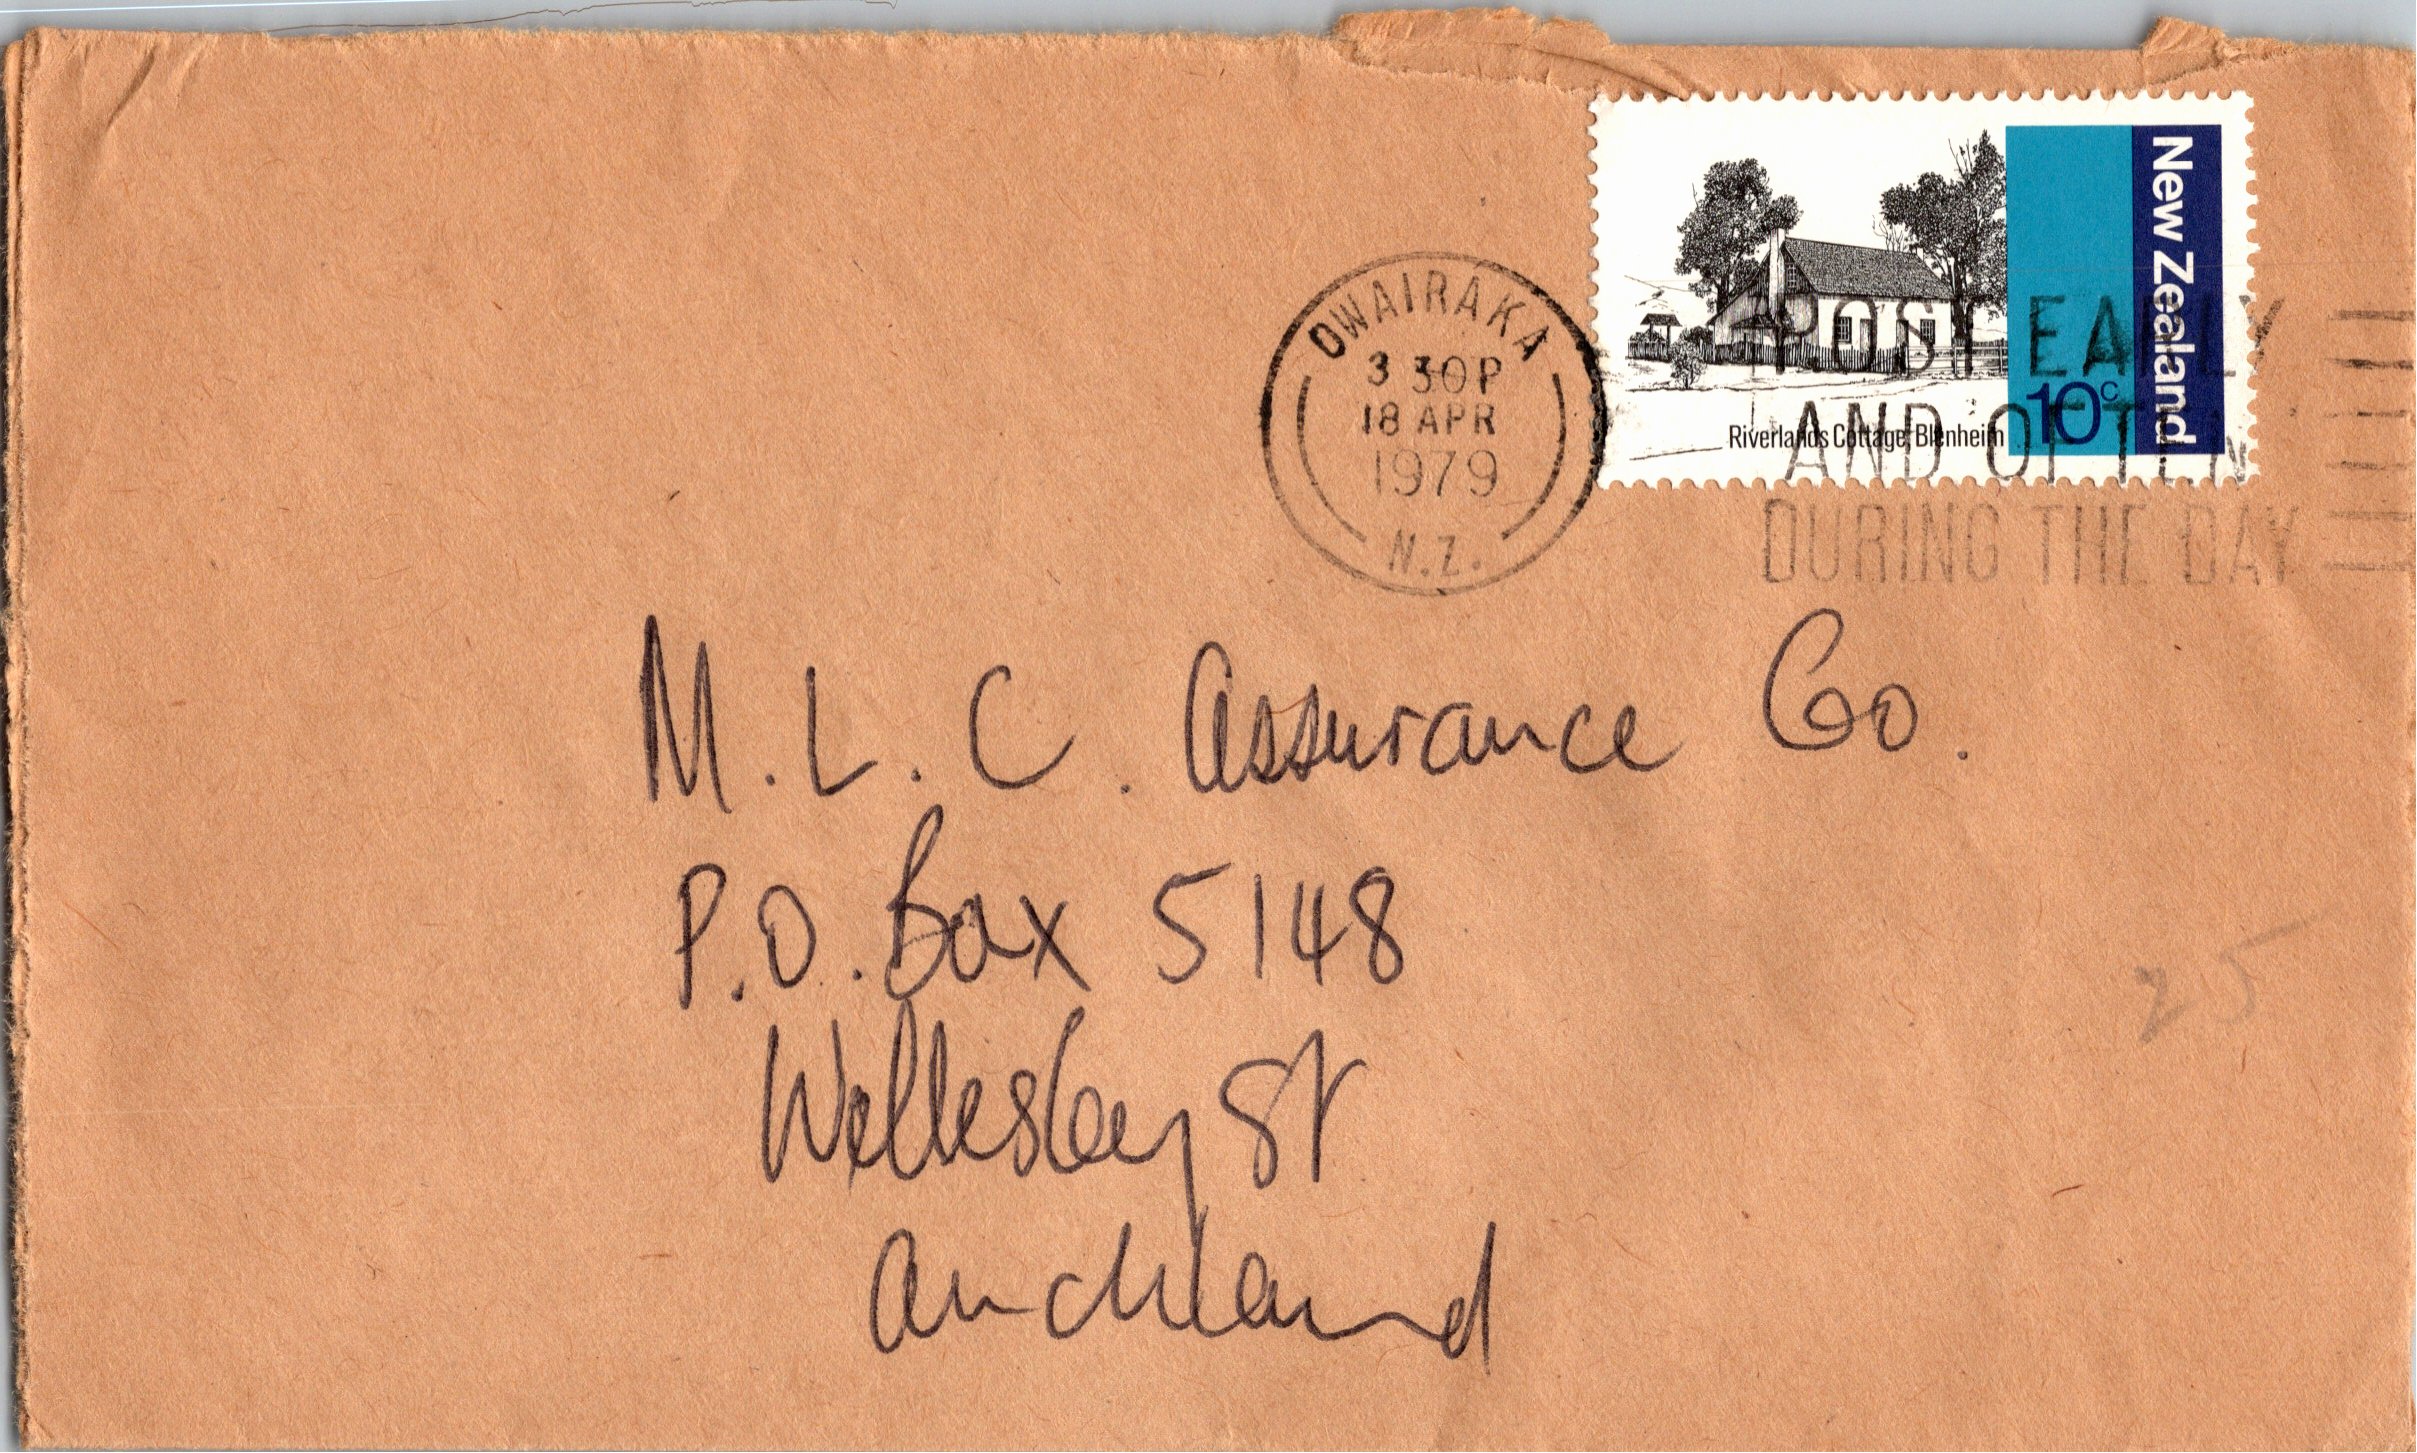 New Zealand
10c
Riverlands Cottage, Blenheim
OWAIRAKA
3 30P
18 APR
1979
N.Z.
POST EARLY
AND OFTEN
DURING THE DAY
M.L.C. Assurance Co.
P.O. Box 5148
Wellesley St
Auckland
25